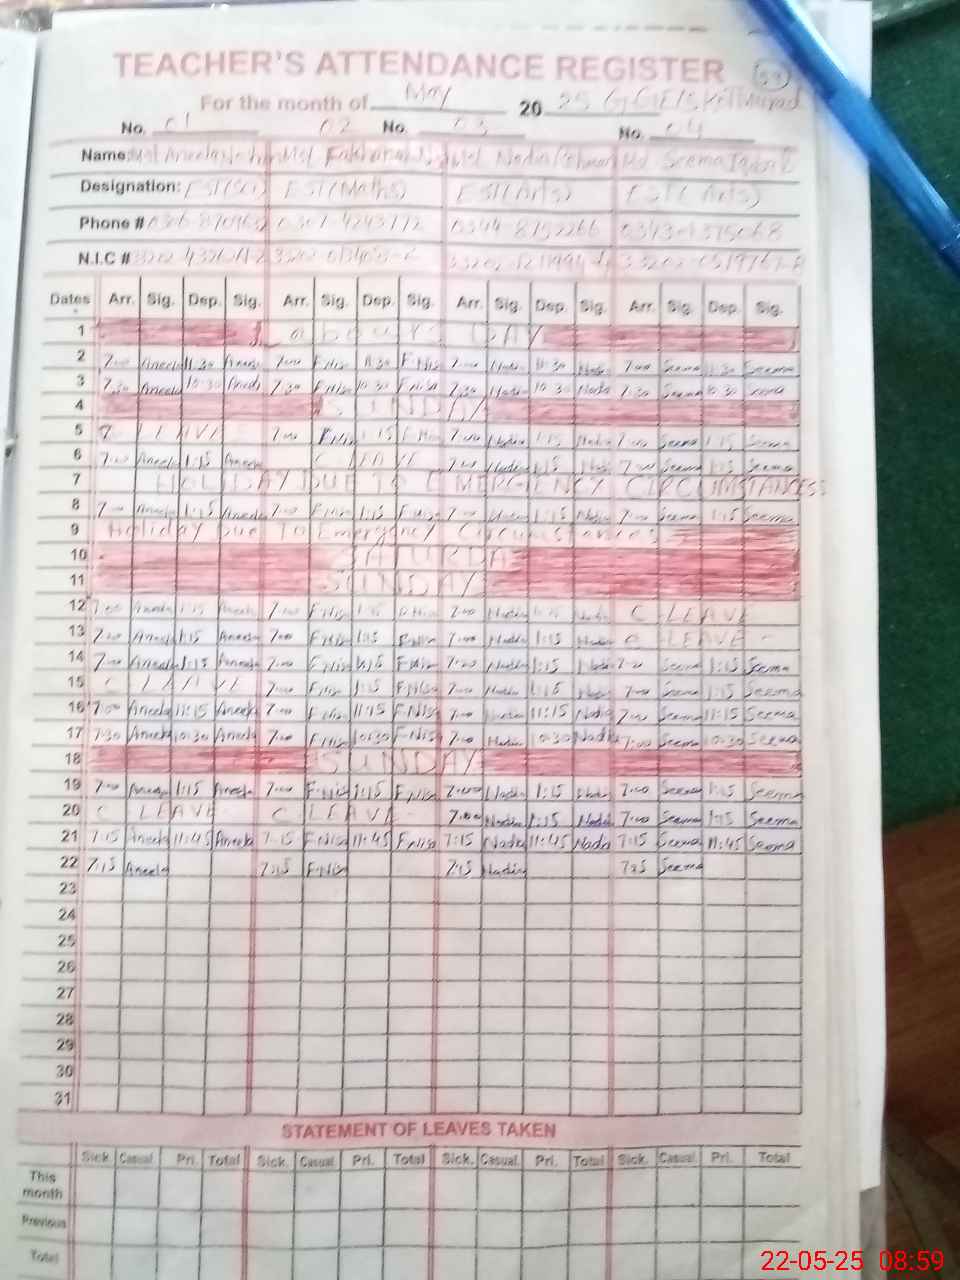 TEACHER'S ATTENDANCE REGISTER 53
For the month of May 20 25
No. 01 02 No. 03 No. 04
Name: Mst Aneela Mst Mst Nadia Mst Seema
Designation: EST(Sci) EST(Maths) EST(Arts) EST(Arts)
Phone # 0344-8752266
N.I.C #
Dates Arr. Sig. Dep. Sig. Arr. Sig. Dep. Sig. Arr. Sig. Dep. Sig. Arr. Sig. Dep. Sig.
1 LABOUR'S DAY
2 7:00 Aneela 11:30 Aneela 7:00 F.Nisa 11:30 F.Nisa 7:00 Nadia 11:30 Nadia 7:00 Seema 11:30 Seema
3 7:30 Aneela 10:30 Aneela 7:30 F.Nisa 10:30 F.Nisa 7:30 Nadia 10:30 Nadia 7:30 Seema 10:30 Seema
4 SUNDAY
5 LEAVE 7:00 F.Nisa 1:15 F.Nisa 7:00 Nadia 1:15 Nadia 7:00 Seema 1:15 Seema
6 7:00 Aneela 1:15 Aneela C LEAVE 7:00 Nadia 1:15 Nadia 7:00 Seema 1:15 Seema
7 HOLIDAY DUE TO EMERGIENCY CIRCUMSTANCESS
8 7:00 Aneela 1:15 Aneela 7:00 F.Nisa 1:15 F.Nisa 7:00 Nadia 1:15 Nadia 7:00 Seema 1:15 Seema
9 Holiday Due To Emergency Circumstances
10 SATURDA
11 SUNDAY
12 7:00 Aneela 1:15 Aneela 7:00 F.Nisa 1:15 F.Nisa 7:00 Nadia 1:15 Nadia C LEAVE
13 7:00 Aneela 1:15 Aneela 7:00 F.Nisa 1:15 F.Nisa 7:00 Nadia 1:15 Nadia C LEAVE -
14 7:00 Aneela 1:15 Aneela 7:00 F.Nisa 1:15 F.Nisa 7:00 Nadia 1:15 Nadia 7:00 Seema 1:15 Seema
15 C LEAVE 7:00 F.Nisa 1:15 F.Nisa 7:00 Nadia 1:15 Nadia 7:00 Seema 1:15 Seema
16 7:00 Aneela 11:15 Aneela 7:00 F.Nisa 11:15 F.Nisa 7:00 Nadia 11:15 Nadia 7:00 Seema 11:15 Seema
17 7:30 Aneela 10:30 Aneela 7:00 F.Nisa 10:30 F.Nisa 7:00 Nadia 10:30 Nadia 7:00 Seema 10:30 Seema
18 SUNDAY
19 7:00 Aneela 1:15 Aneela 7:00 F.Nisa 1:15 F.Nisa 7:00 Nadia 1:15 Nadia 7:00 Seema 1:15 Seema
20 C LEAVE C LEAVE - 7:00 Nadia 1:15 Nadia 7:00 Seema 1:15 Seema
21 7:15 Aneela 11:45 Aneela 7:15 F.Nisa 11:45 F.Nisa 7:15 Nadia 11:45 Nadia 7:15 Seema 11:45 Seema
22 7:15 Aneela 7:15 F.Nisa 7:15 Nadia 7:15 Seema
23
24
25
26
27
28
29
30
31
STATEMENT OF LEAVES TAKEN
Sick. Casual. Pri. Total Sick. Casual. Pri. Total Sick. Casual. Pri. Total Sick. Casual. Pri. Total
This month
Previous
Total
22-05-25 08:59